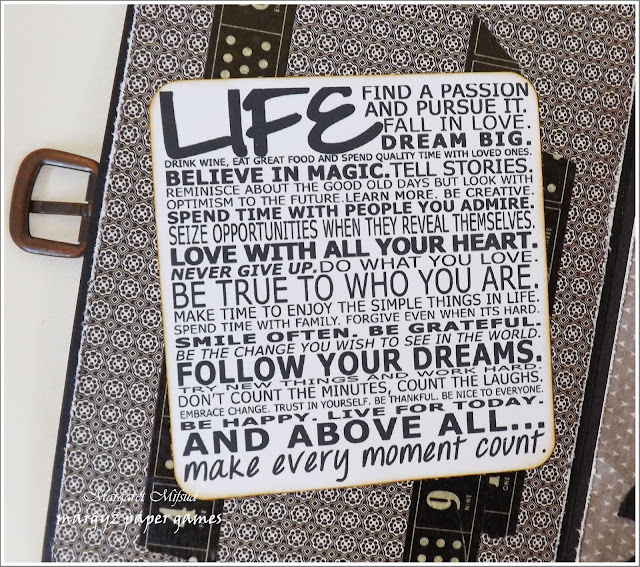 LIFE
FIND A PASSION
AND PURSUE IT.
FALL IN LOVE.
DREAM BIG.
DRINK WINE, EAT GREAT FOOD AND SPEND QUALITY TIME WITH LOVED ONES.
BELIEVE IN MAGIC. TELL STORIES.
REMINISCE ABOUT THE GOOD OLD DAYS BUT LOOK WITH
OPTIMISM TO THE FUTURE. LEARN MORE. BE CREATIVE.
SPEND TIME WITH PEOPLE YOU ADMIRE.
SEIZE OPPORTUNITIES WHEN THEY REVEAL THEMSELVES.
LOVE WITH ALL YOUR HEART.
NEVER GIVE UP. DO WHAT YOU LOVE.
BE TRUE TO WHO YOU ARE.
MAKE TIME TO ENJOY THE SIMPLE THINGS IN LIFE.
SPEND TIME WITH FAMILY. FORGIVE EVEN WHEN ITS HARD.
SMILE OFTEN. BE GRATEFUL.
BE THE CHANGE YOU WISH TO SEE IN THE WORLD.
FOLLOW YOUR DREAMS.
TRY NEW THINGS AND WORK HARD.
DON'T COUNT THE MINUTES, COUNT THE LAUGHS.
EMBRACE CHANGE. TRUST IN YOURSELF. BE THANKFUL. BE NICE TO EVERYONE.
BE HAPPY. LIVE FOR TODAY.
AND ABOVE ALL...
make every moment count.
9
NINE
1
ONE
Margaret Mifsud
margyz paper games